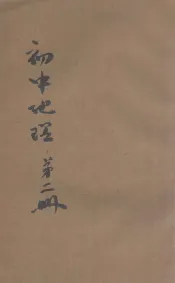 初中地理·第二册